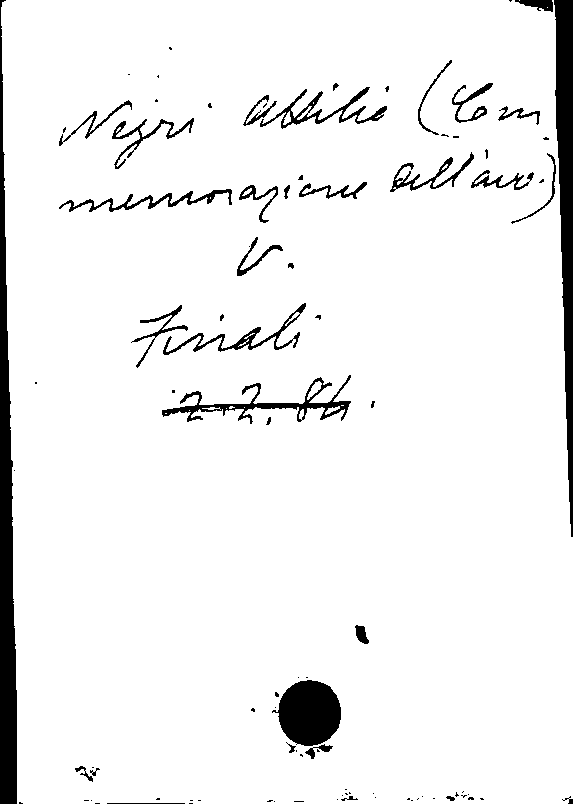 Negri Attilio (Com
memorazione dell'avv.)
V.
Finali
2.2.84.